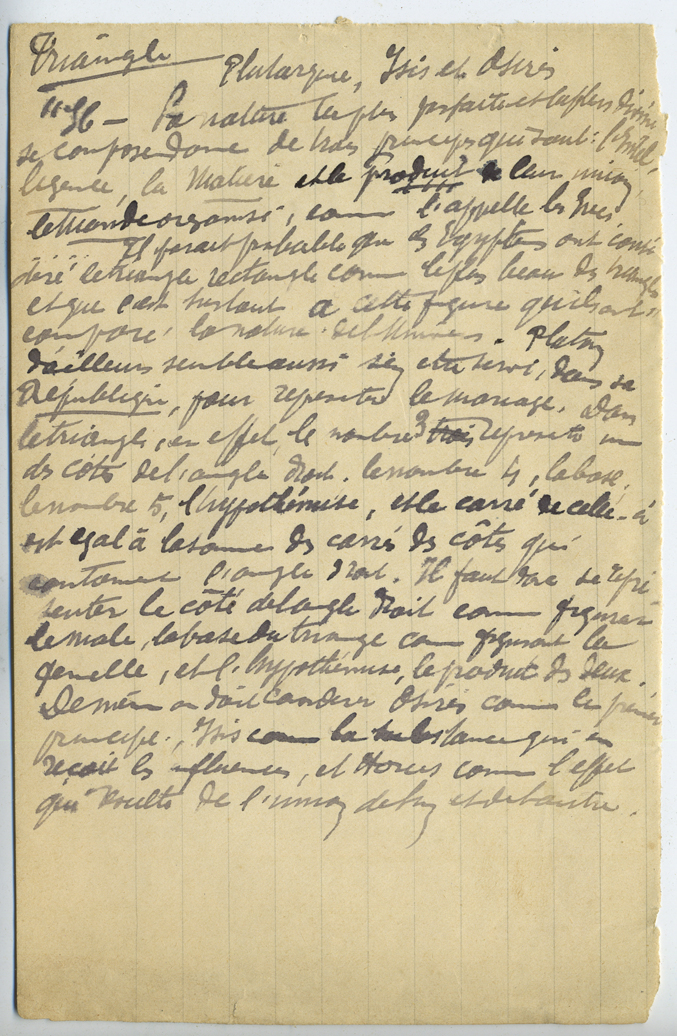 Triangle
Plutarque, Isis et Osiris
"56 — La nature la plus parfaite et la plus divine
se compose donc de trois principes qui sont: l'Intel-
ligence, la Matière et le produit de leur union,
le Monde organisé, comme l'appelle les Grecs
Il serait probable que les Egyptiens ont consi-
déré le triangle rectangle comme le plus beau des triangles
et que c'est surtout à cette figure qu'ils ont
comparé la nature de l'Univers. Platon
d'ailleurs semble aussi s'en être servi, dans sa
République, pour représenter le mariage. Dans
le triangle, en effet, le nombre 3 représente un
des côtés de l'angle droit. le nombre 4, la base,
le nombre 5, l'hypothénuse, et le carré de celle-ci
est égal à la somme des carrés des côtés qui
contiennent l'angle droit. Il faut donc se repré
senter le côté de l'angle droit comme figurant
le male, la base du triangle comme figurant la
femelle, et l'hypothénuse, le produit des deux.
De même on doit considérer Osiris comme le premier
principe, Isis comme la substance qui en
reçoit les influences, et Horus comme l'effet
qui résulte de l'union de l'un et de l'autre.